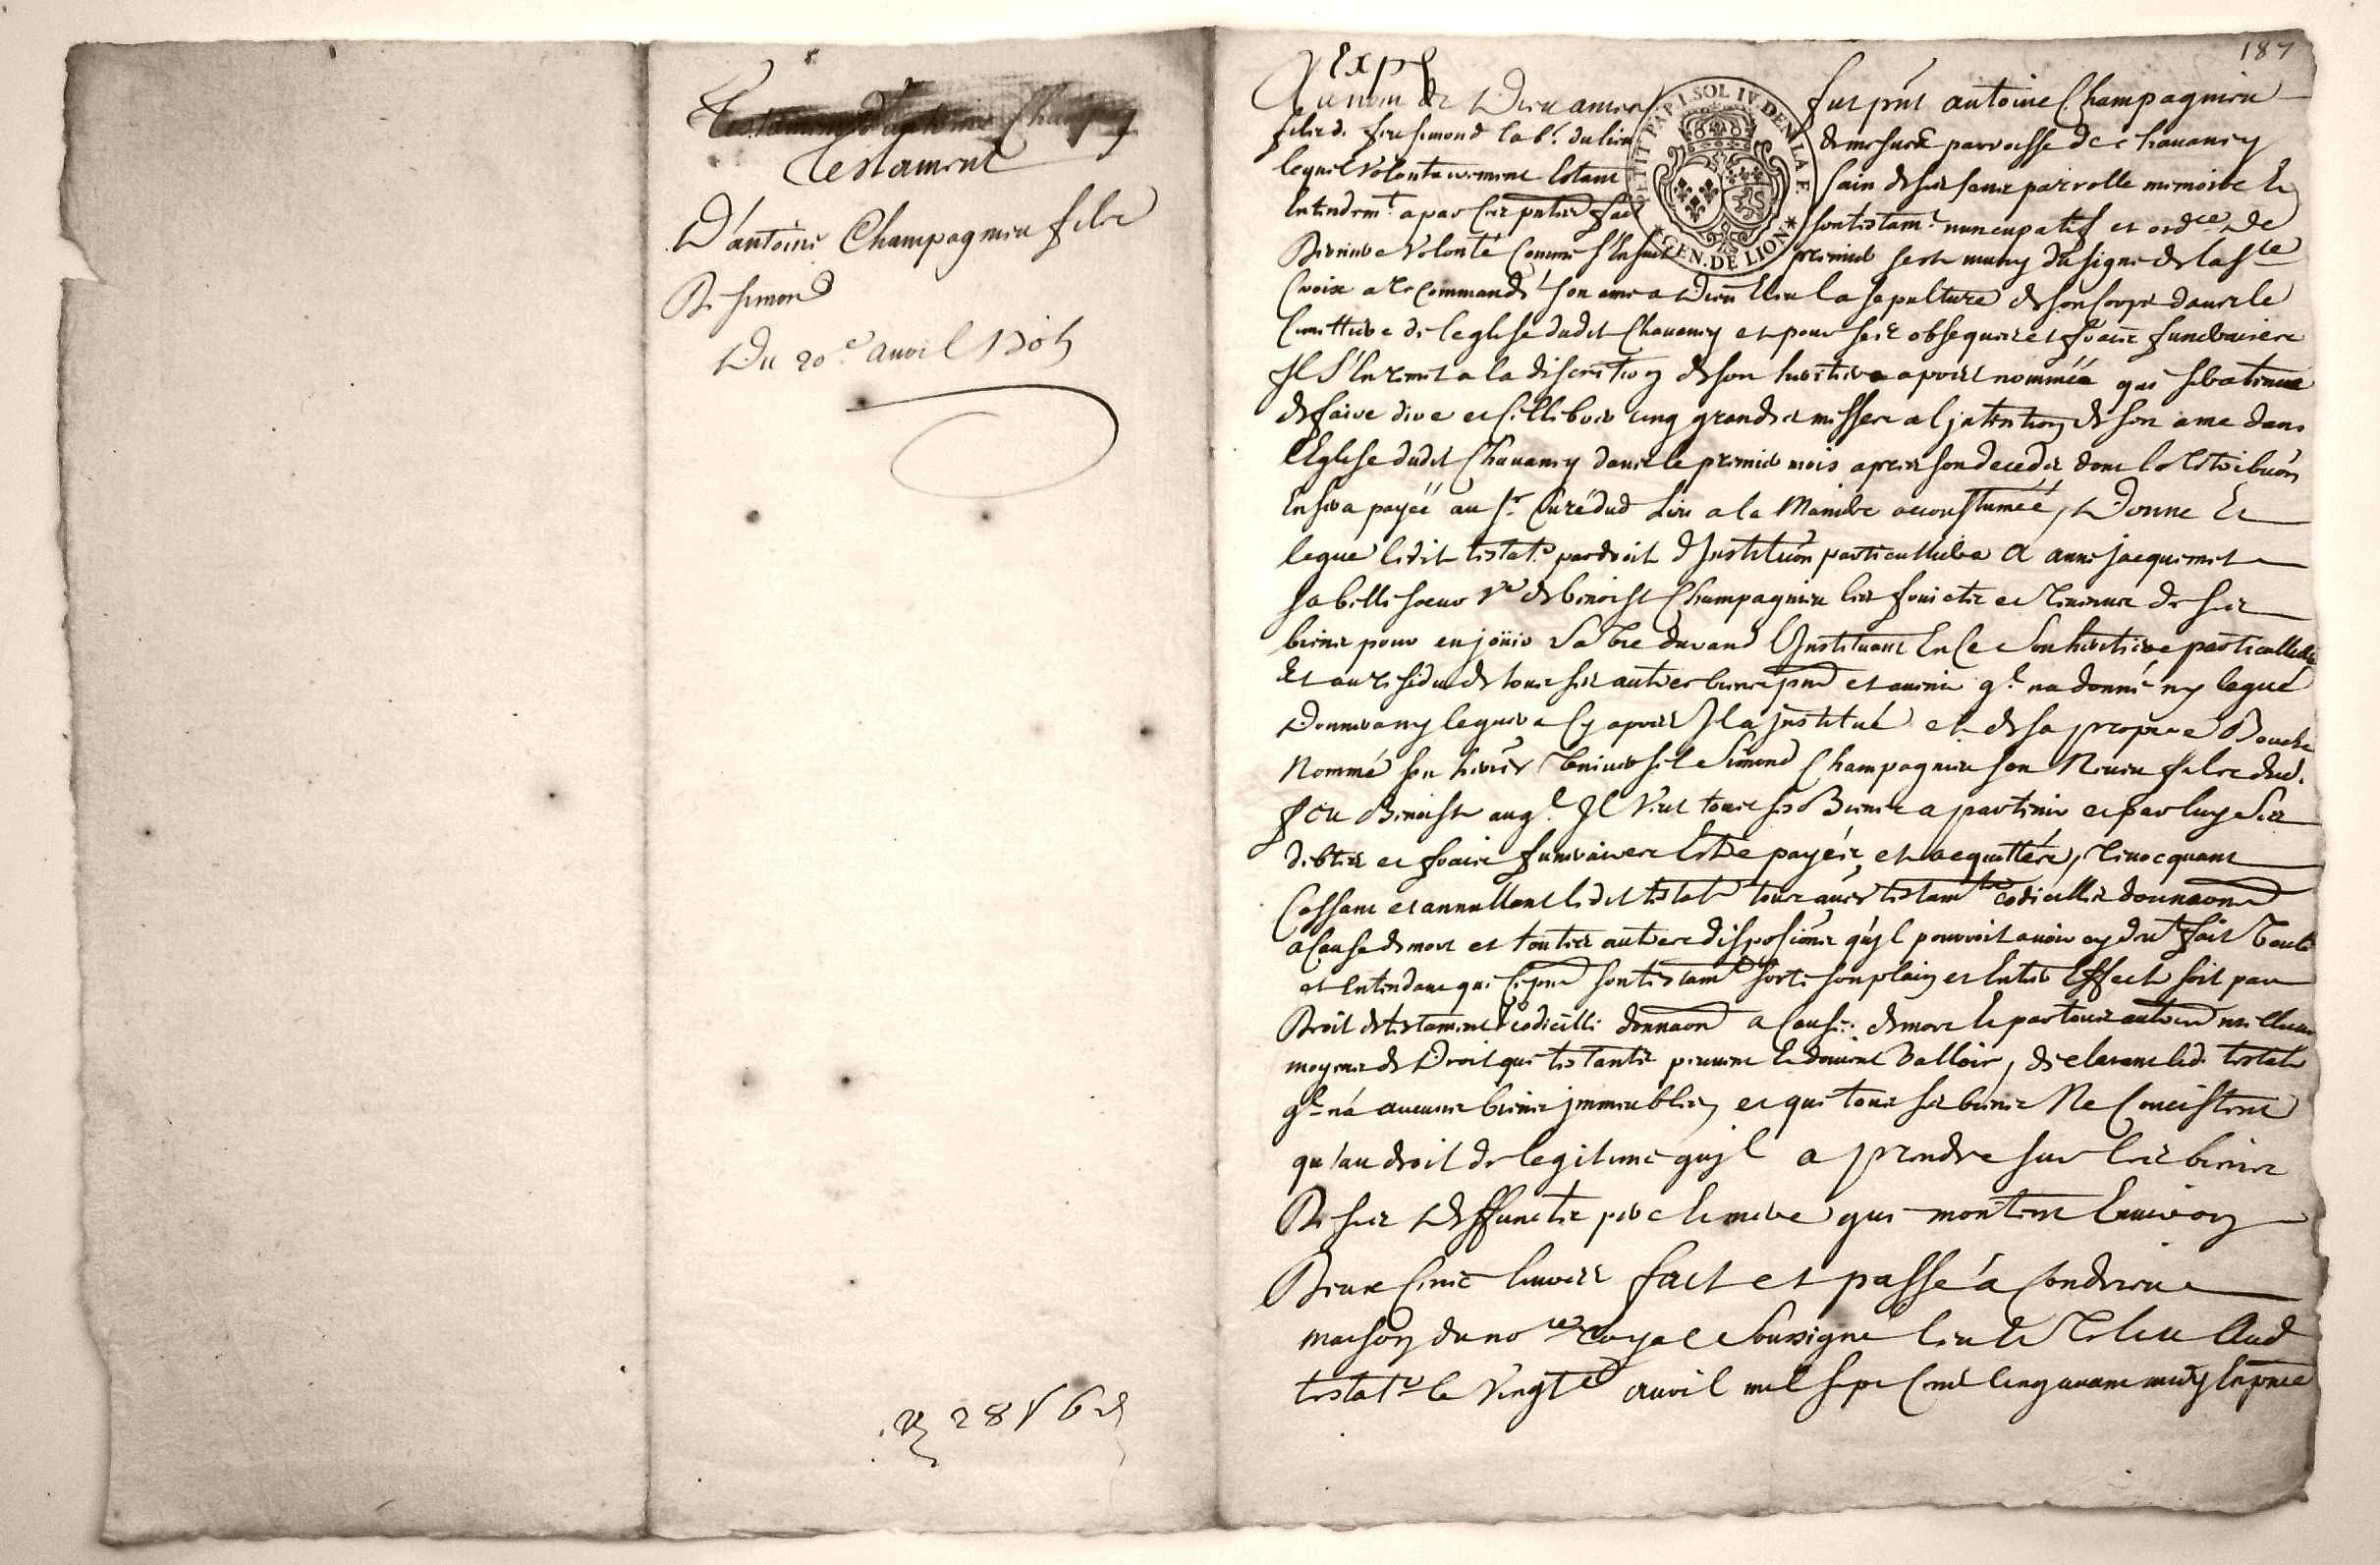 Testament
D'antoine Champagnieu fils
De simond
Du 20e auril
28 6d
187
Exp
Au nom de Dieu amen fut pnt antoine Champagnieu
fils de feu simond labr. du lieu de parroisse de chauanay
lequel Volontairement Estant sain de ses sens parrolle memoire Et
Entendemt. a par Ces ptes fait son testamt. nuncupatif et ordce. De
Derniere Volonté Comme s'Ensuit premier sest muny du signe de la Ste
Croix a recommandé son ame a Dieu Eleu la sepulture de son Corps dans le
Cimettiere de leglise dudit Chauanay et pour ses obseques et fraix funeraires
Il s'En remet a la discretion de son heritier apres nommée qui sera tenue
de faire dire et Cellebrer cinq grandes messes al jntention de son ame dans
lEglise dudit Chauanay dans le premier mois apres son decedz dont la retribuon
En sera payéé au sr. Curé dud Lieu a la Maniere accoustuméé, Donne Et
legue ledit testatr. par droit dJnstituon particulliere a anne jacquemet
sa belle soeur Ve de benoist Champagnieu les fruicts et reuenus de ses
biens pour en joüir sa Vie durand L'Jnstituant En Ce son heritiere particulliere
Et au residu de tous ses autres biens pnts et auenir ql. na donné ny legué
Donnera ny leguera Cy apres Jl a jnstitué et de sa propre Bouche
Nommé son herier Vniuersel Simond Champagnieu son Neueu fils dud.
feu Benoist auql. Jl Veut tous ses Biens apartenir et par luy ses
debtes et fraix funeraires Estre payés et acquittés, reuocquant
Cassant et annullant ledit testatr tous aues testamts codicilles donnaons
a Cause de mort et touttes autres disposions qujl pouroit auoir cy deut fait Veult
et Entendant que Ce pnt son testamt sorte son plain et Entier Effect soit par
Droit de testament codicille donnaon a Cause de mort Et par tous autres meilleurs
moyens de Droit que testants peuuent Et doiuent Valloir, declarant led. testatr
ql. na aucuns biens jmmeubles, et que tous ses biens Ne Concistent
qu'au droit de legitime qujl a a prendre sur les biens
De ses Deffuncts pere Et mere qui montent Enuiron
Deux Cent liures fait et passé a Condrieu
maison du nore Royal soussigné leu Et releu Aud
testatr le Vingte auril mil sept Cent cinq auant midy En pnce
PETIT PAPI. SOL IV. DEN. LA F.
GEN. DE LION